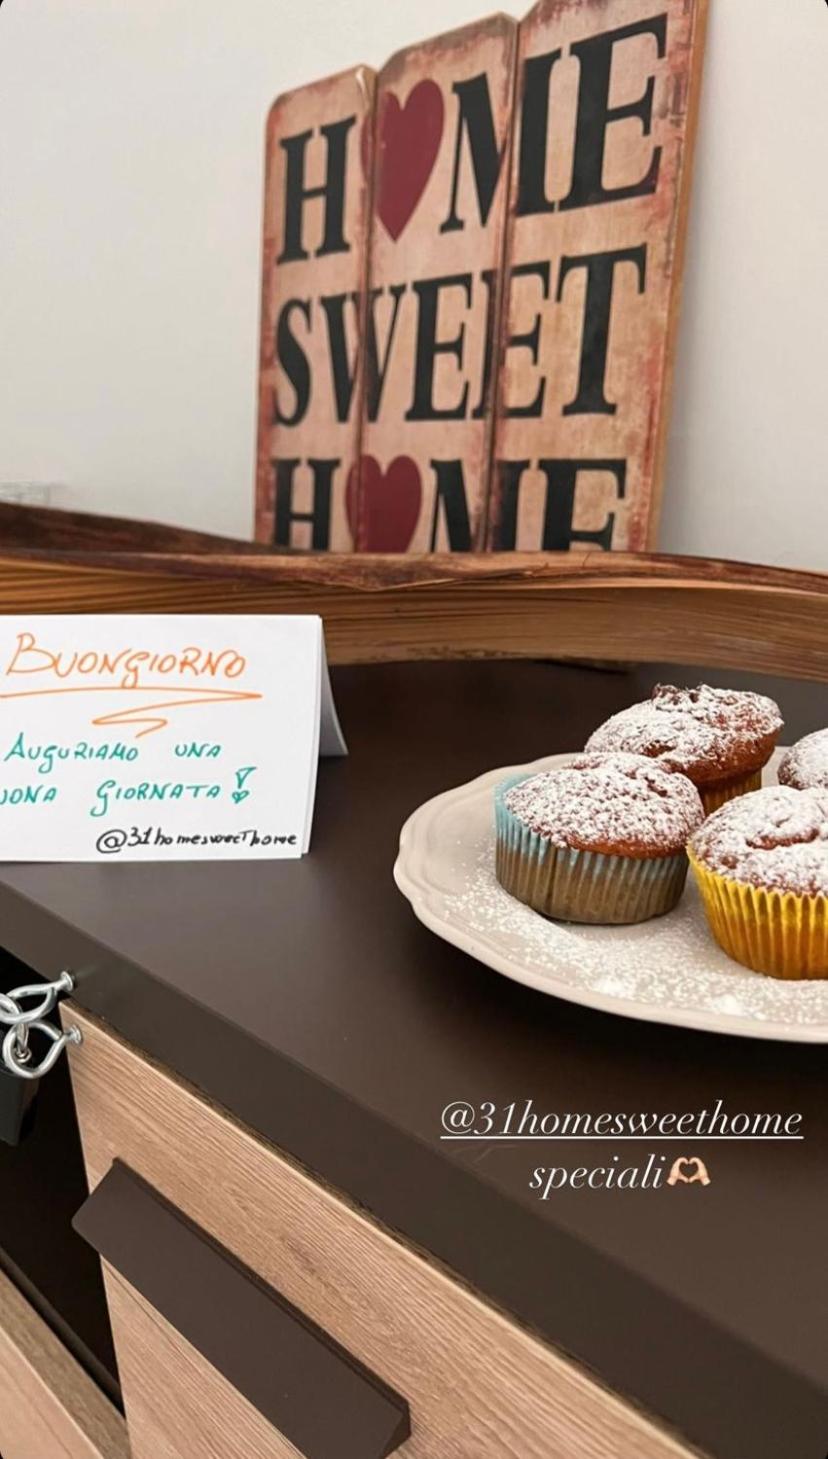 H♥ME
SWEET
H♥ME
BUONGIORNO
AUGURIAMO UNA
UONA GIORNATA!
@31homesweethome
@31homesweethome
speciali🫶🏻